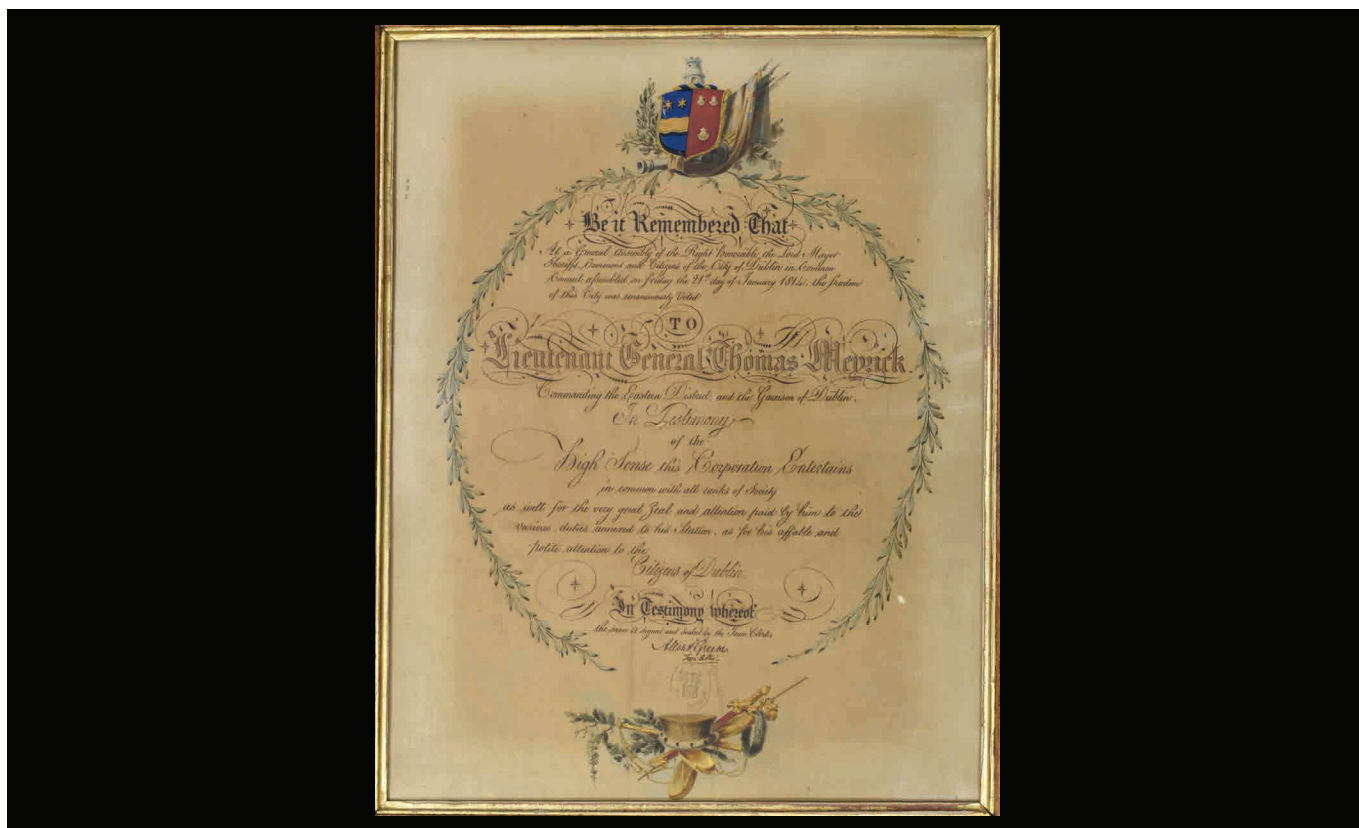 Be it Remembered That
At a General Assembly of the Right Honorable the Lord Mayor
Sheriffs Commons and Citizens of the City of Dublin in Common
Council assembled on Friday the 21st day of January 1814, the freedom
of this City was unanimously Voted
TO
Lieutenant General Thomas Meyrick
Commanding the Eastern District and the Garrison of Dublin.
In Testimony
of the
High Sense this Corporation Entertains
in common with all ranks of Society
as well for the very great Zeal and attention paid by him to the
various duties annexed to his Station, as for his affable and
polite attention to the
Citizens of Dublin.
In Testimony whereof
the same is signed and sealed by the Town Clerks
Green